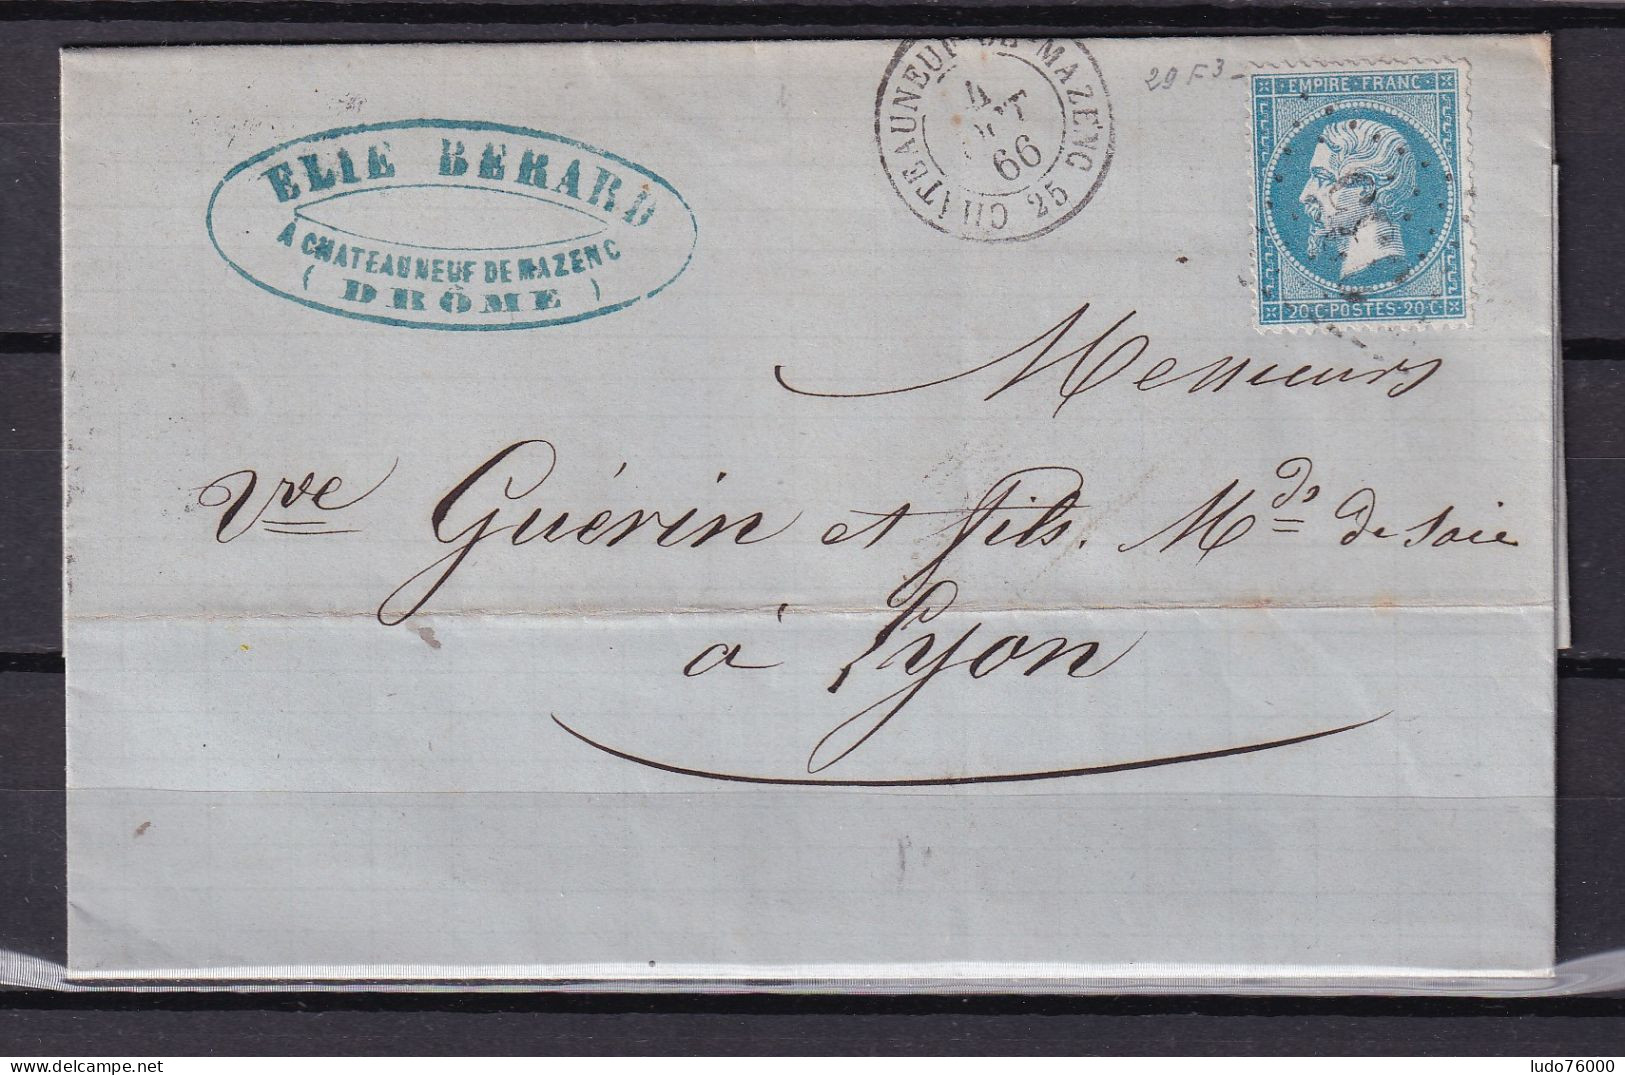 ELIE BERARD
A CHATEAUNEUF DE MAZENC
( DRÔME )
CHATEAUNEUF-DE-MAZENC
4
66
25
29 F3
EMPIRE·FRANC
20·C·POSTES·20·C
Messieurs
Vve Guérin et fils. Mds de soie
à Lyon
delcampe.net
ludo76000